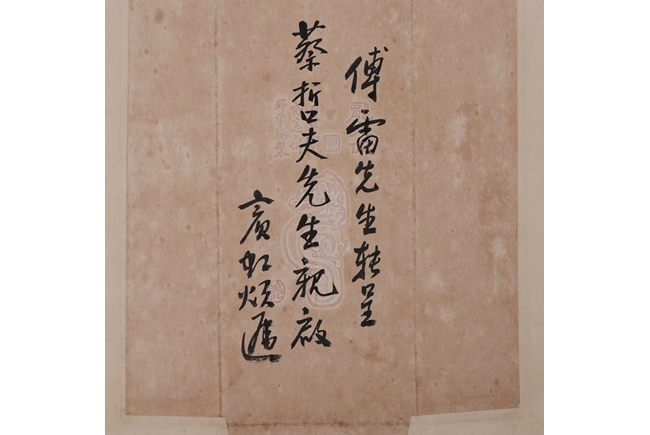 傅雷先生转呈
蔡哲夫先生親啟
賓虹煩遞